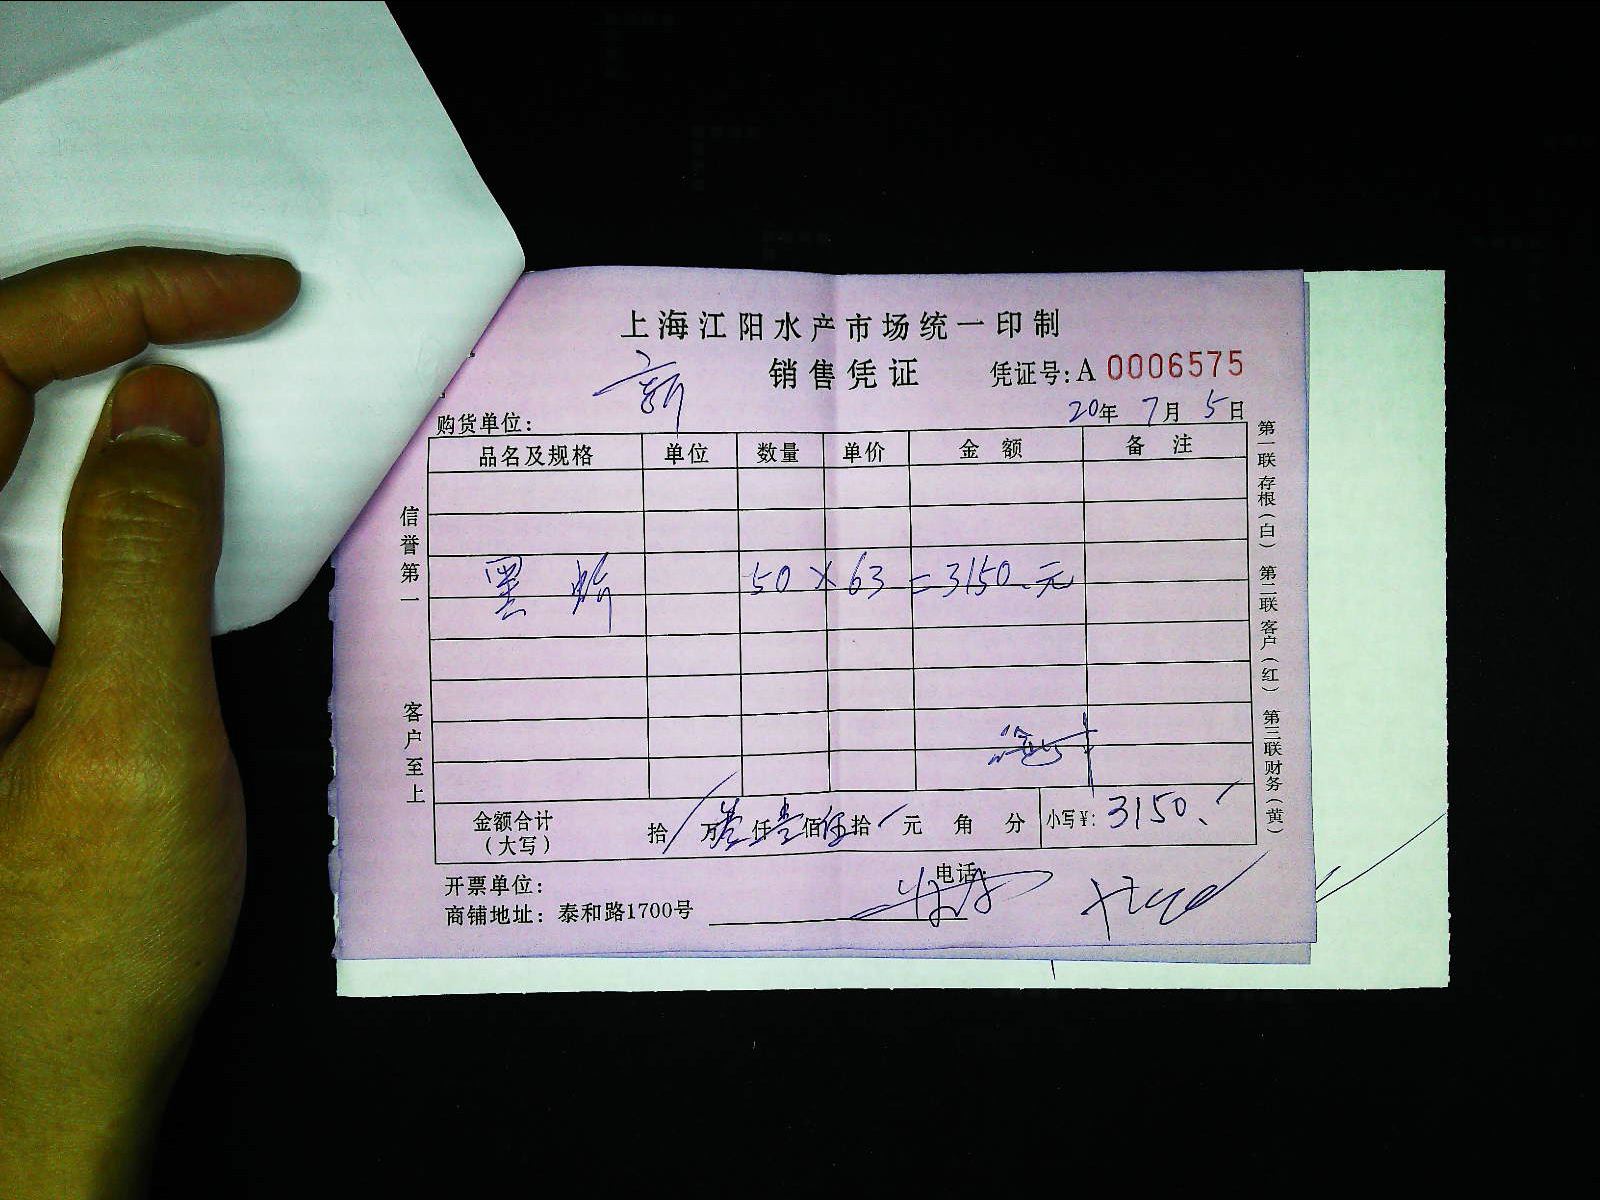 上海江阳水产市场统一印制
销售凭证 凭证号:A 0006575
购货单位:
20年 7月 5日
品名及规格 单位 数量 单价 金额 备注
黑 50 × 63 = 3150.元
金额合计 拾 万叁仟壹佰伍拾 元 角 分 小写¥: 3150.
（大写）
开票单位: 电话:
商铺地址: 泰和路1700号
信誉第一
客户至上
第一联存根（白） 第二联客户（红） 第三联财务（黄）